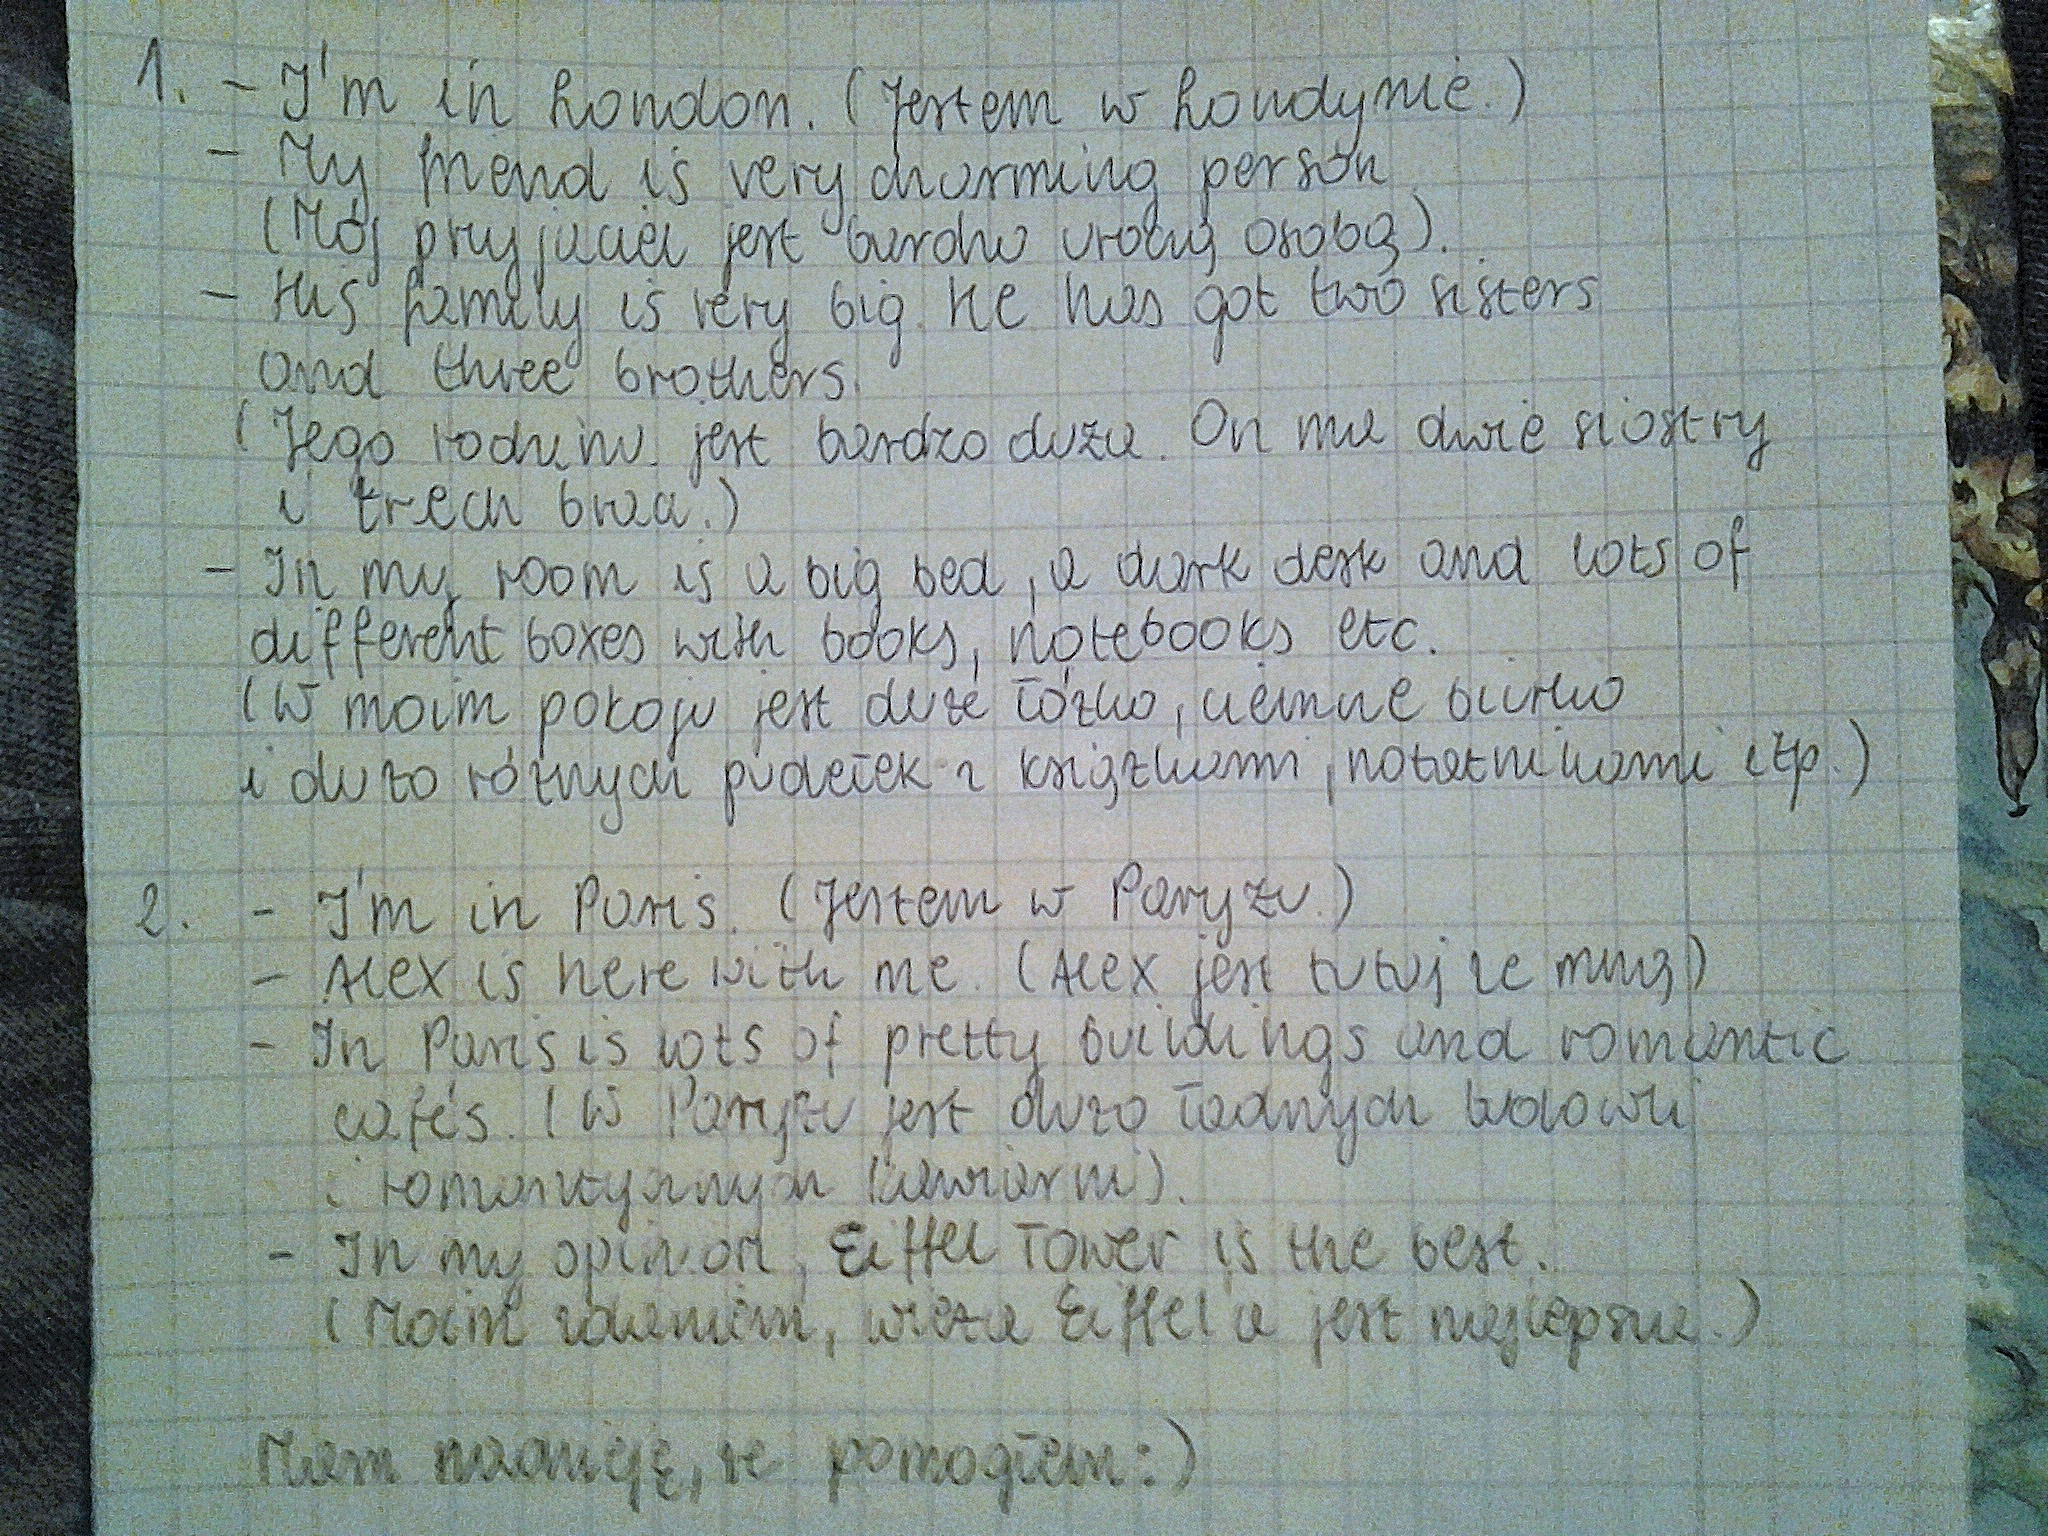 1. - I'm in London. (Jestem w Londynie.)
- My friend is very charming person
(Mój przyjaciel jest bardzo uroczą osobą).
- His family is very big. He has got two sisters
and three brothers.
(Jego rodzina jest bardzo duża. On ma dwie siostry
i trzech braci.)
- In my room is a big bed, a dark desk and lots of
different boxes with books, notebooks etc.
(W moim pokoju jest duże łóżko, ciemne biurko
i dużo różnych pudełek z książkami, notatnikami itp.)
2. - I'm in Paris. (Jestem w Paryżu.)
- Alex is here with me. (Alex jest tutaj ze mną)
- In Paris is lots of pretty buildings and romantic
cafés. (W Paryżu jest dużo ładnych budowli
i romantycznych kawiarni).
- In my opinion, Eiffel Tower is the best.
(Moim zdaniem, wieża Eiffel'a jest najlepsza.)
Mam nadzieję, że pomogłem :)